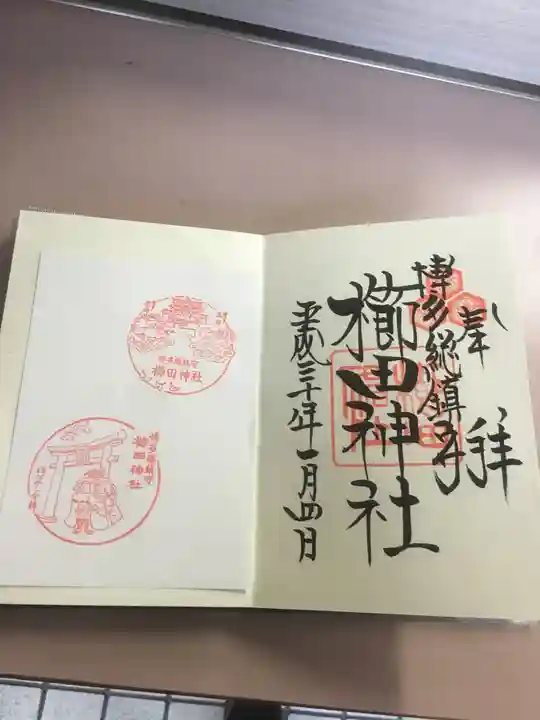 奉拝
博多総鎮守
櫛田神社
平成三十年一月四日
博多総鎮守
櫛田神社
博多総鎮守
櫛田神社